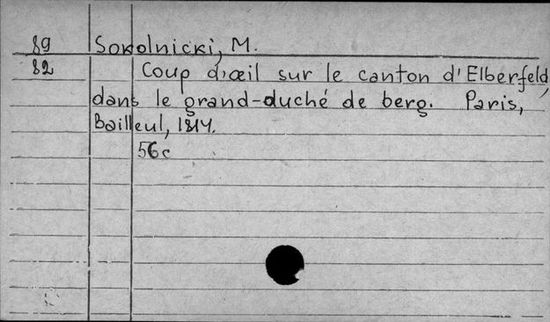 89 Sokolnicki, M.
82 Coup d'œil sur le canton d'Elberfeld,
dans le grand-duché de berg. Paris,
Bailleul, 1814.
56c